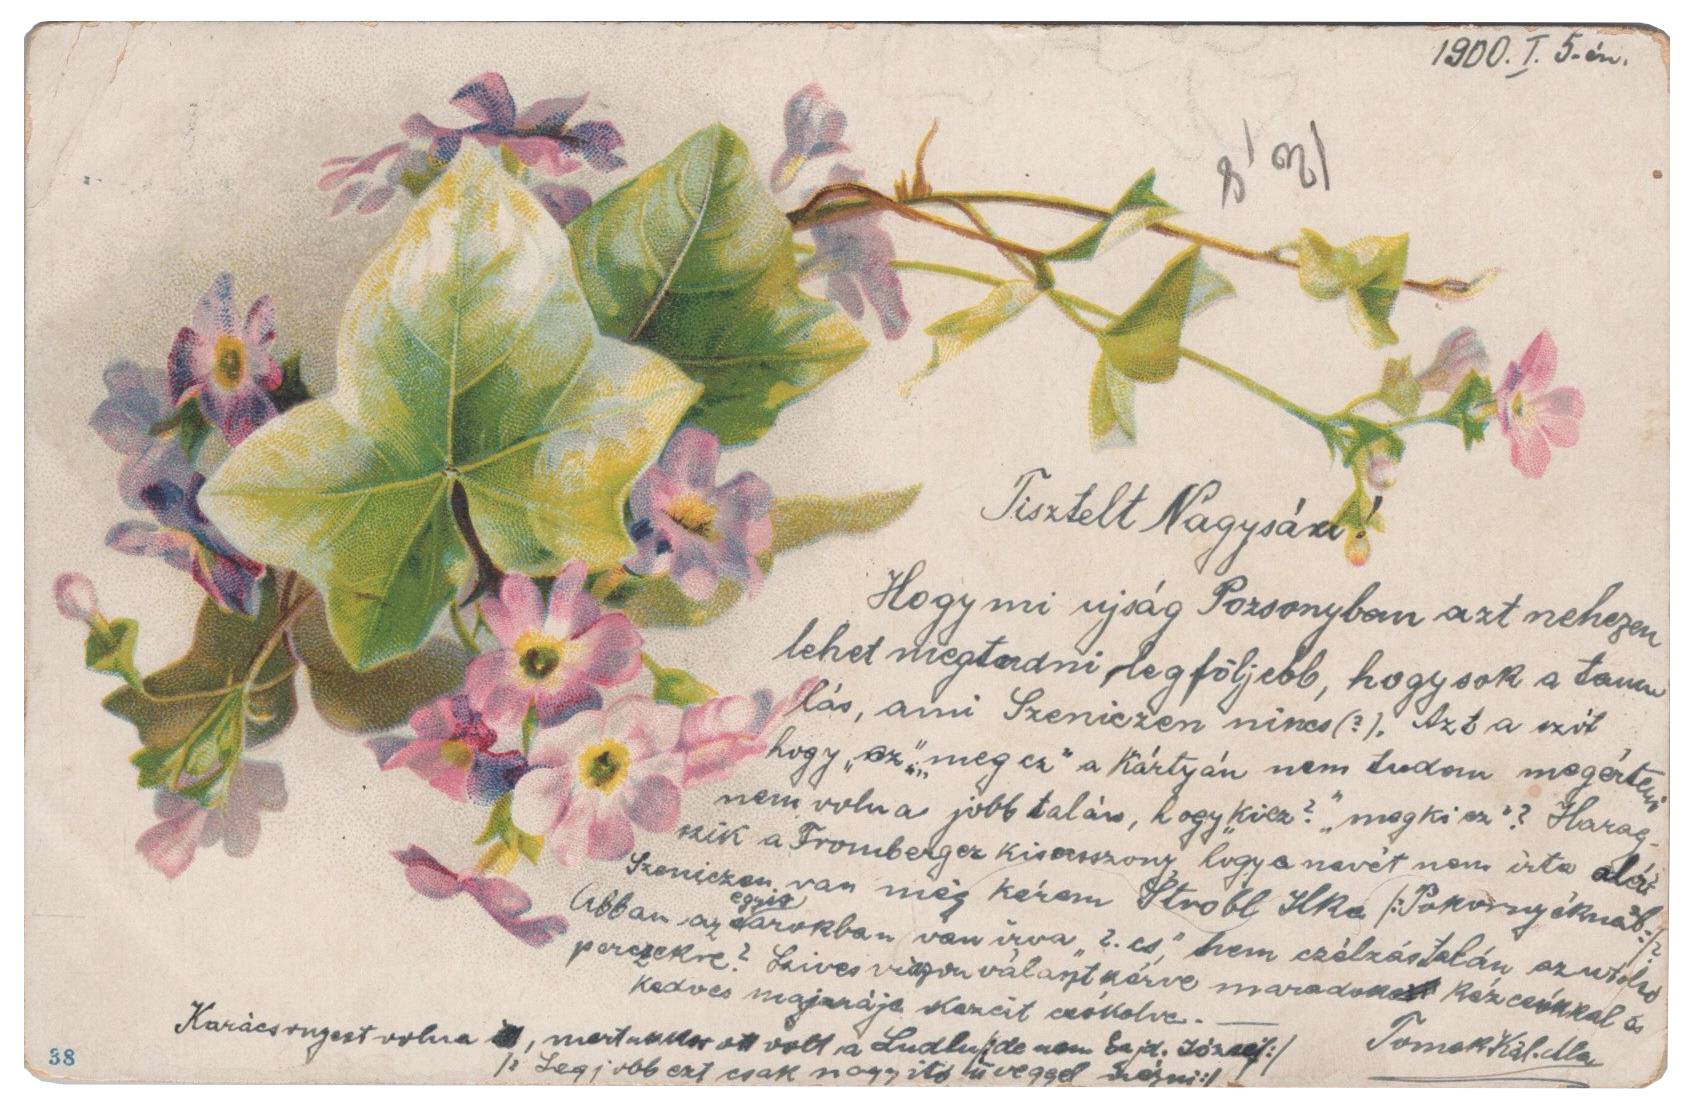 1900. I. 5-én.
Tisztelt Nagysám!
Hogy mi ujság Pozsonyban azt nehezen
lehet megtudni, legföljebb, hogy sok a tanu
lás, ami Szeniczen nincs (?). Azt a szót
hogy „ez" „meg ez" a kártyán nem tudom megérteni
nem volna jobb talán, hogy „ki ez?" „meg ki ez"? Harag-
szik a Fromberger kisasszony, hogy a nevét nem irta alá?
Szeniczen van még kérem Strobl Ilka /:Pokornyéknál:/?
Abban az egyik sarokban van irva „2. cs," nem czélzás talán az utolsó
perczekre? Szives választ kérve maradok kézcsókkal és
kedves mamája kezeit csókolva. —
Karácsonyest volna, mert akkor ott volt a
/: Legjobb ezt csak nagyitó üveggel nézni :/
Tomek Kál.
38